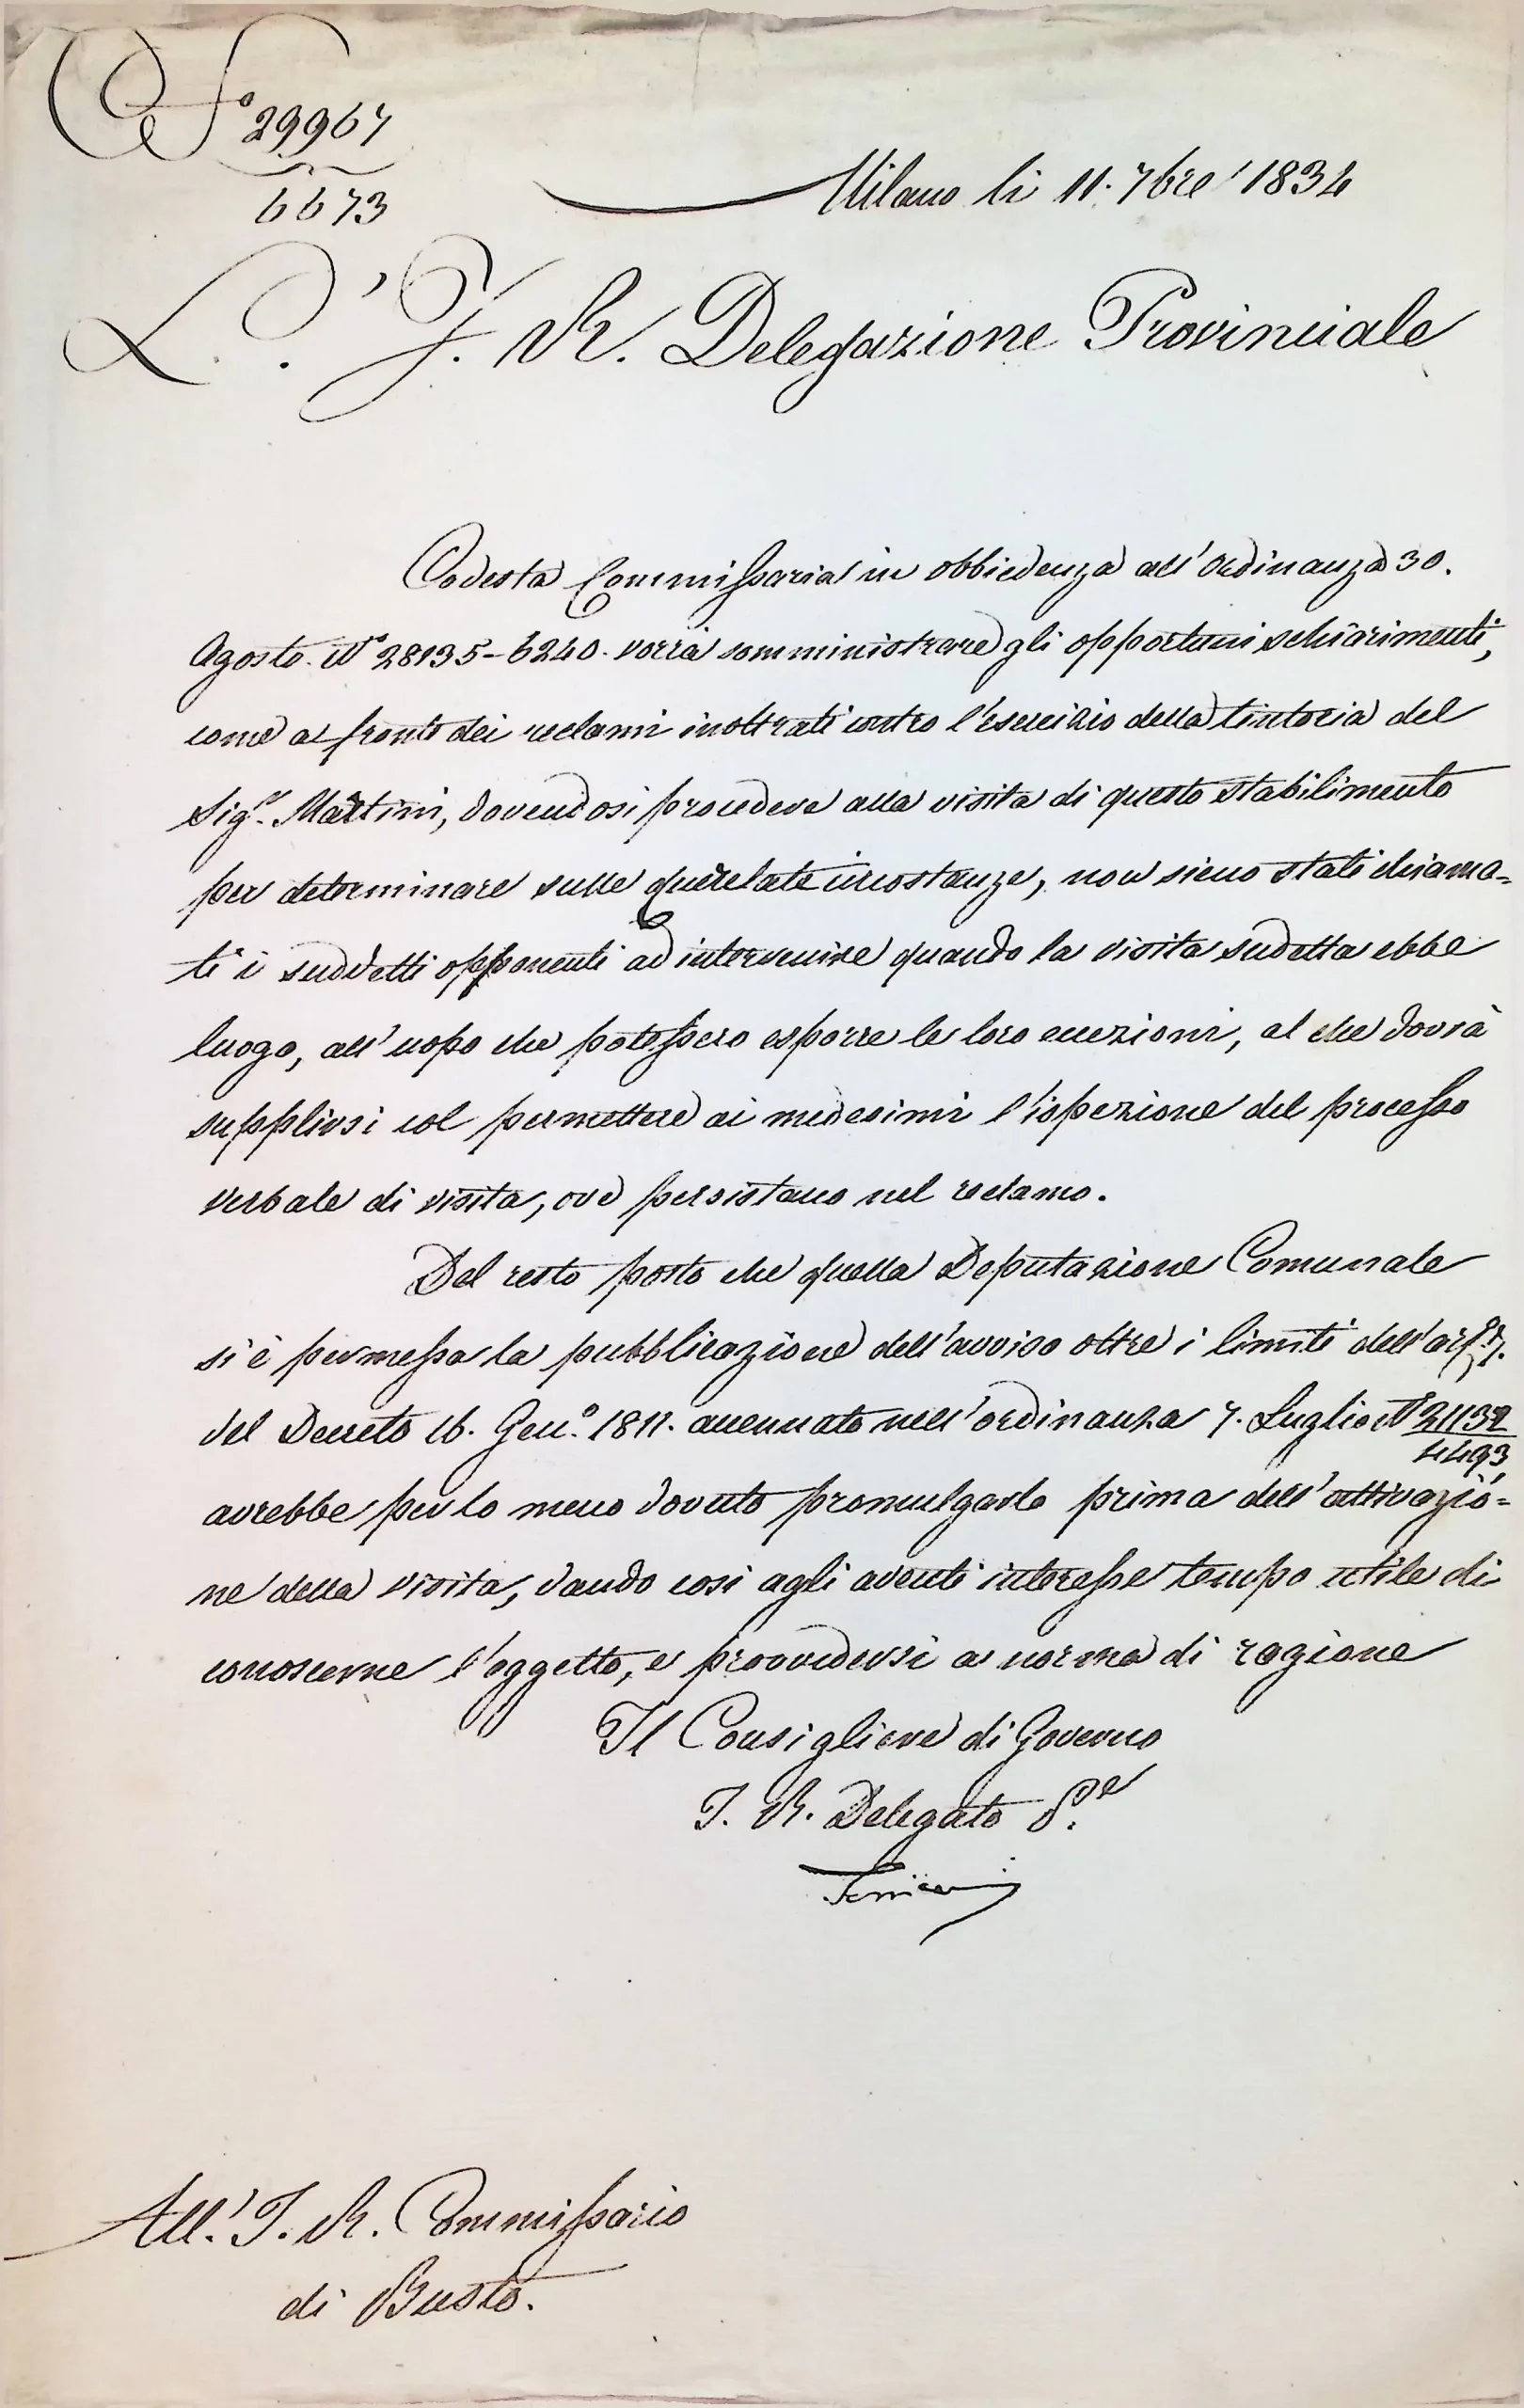 N.° 29967
6673
Milano li 11. 7bre 1834
L'I. R. Delegazione Provinciale
Codesta Commissaria in obbiedenza all'Ordinanza 30.
Agosto. N° 28135-6240. vorrà somministrare gli opportuni schiarimenti,
come a fronte dei reclami inoltrati contro l'esercizio della tintoria del
Sig.r Martini, dovendosi procedere alla visita di questo stabilimento
per determinare sulle querelate circostanze, non sieno stati chiama=
ti i suddetti opponenti ad intervenire quando la visita sudetta ebbe
luogo, all'uopo che potessero esporre le loro eccezioni, al che dovrà
supplirsi col permettere ai medesimi l'ispezione del processo
verbale di visita, ove persistano nel reclamo.
Del resto posto che quella Deputazione Comunale
si è permessa la pubblicazione dell'avviso oltre i limiti dell'art.° 7.
del Decreto 16. Gen.° 1811. accennato nell'ordinanza 7. Luglio N° 21132
4493,
avrebbe per lo meno dovuto promulgarlo prima dell'attivazio=
ne della visita, dando così agli aventi interesse tempo utile di
conoscerne l'oggetto, e provvedersi a norma di ragione
Il Consigliere di Governo
I. R. Delegato P.le
All'I. R. Commissario
di Busto.